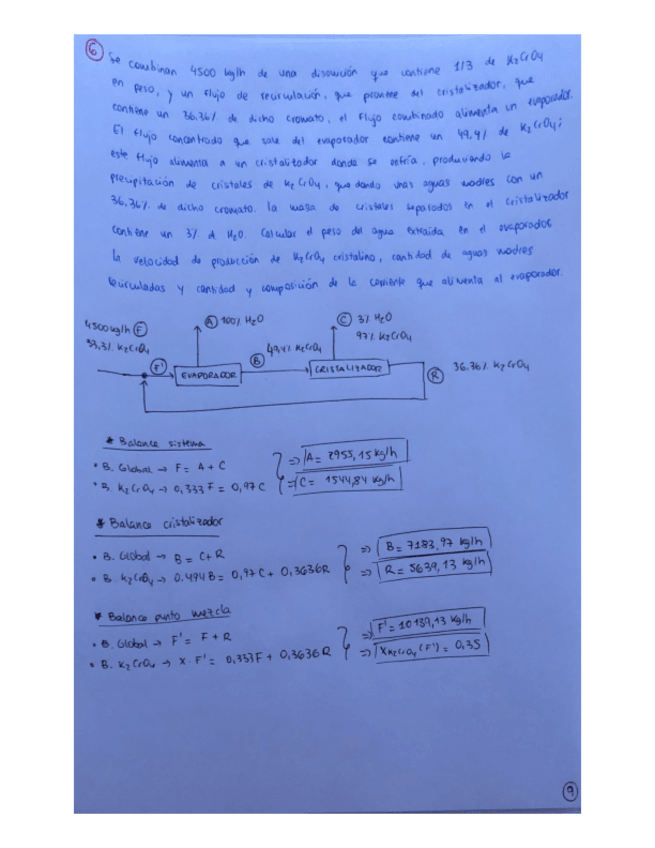 6
Se combinan 4500 kg/h de una disolución que contiene 1/3 de K2CrO4
en peso, y un flujo de recirculación, que proviene del cristalizador, que
contiene un 36,36% de dicho cromato, el flujo combinado alimenta un evaporador.
El flujo concentrado que sale del evaporador contiene un 49,4% de K2CrO4;
este flujo alimenta a un cristalizador donde se enfría, produciendo la
precipitación de cristales de K2CrO4, quedando unas aguas madres con un
36,36% de dicho cromato. La masa de cristales separados en el cristalizador
contiene un 3% de H2O. Calcular el peso del agua extraída en el evaporados
la velocidad de producción de K2CrO4 cristalino, cantidad de aguas madres
recirculadas y cantidad y composición de la corriente que alimenta al evaporador.
4500 kg/h F
33,3% K2CrO4
A 100% H2O
C 3% H2O
97% K2CrO4
F'
EVAPORADOR
B
49,4% K2CrO4
CRISTALIZADOR
R
36.36% K2CrO4
* Balance sistema
• B. Global → F = A + C
• B. K2CrO4 → 0,333 F = 0,97 C
⇒ A = 2955,15 kg/h
⇒ C = 1544,84 kg/h
* Balance cristalizador
• B. Global → B = C + R
• B. K2CrO4 → 0.494 B = 0,97 C + 0,3636 R
⇒ B = 7183,97 kg/h
⇒ R = 5639,13 kg/h
* Balance punto mezcla
• B. Global → F' = F + R
• B. K2CrO4 → X · F' = 0,333 F + 0,3636 R
⇒ F' = 10139,13 kg/h
⇒ XK2CrO4 (F') = 0,35
9